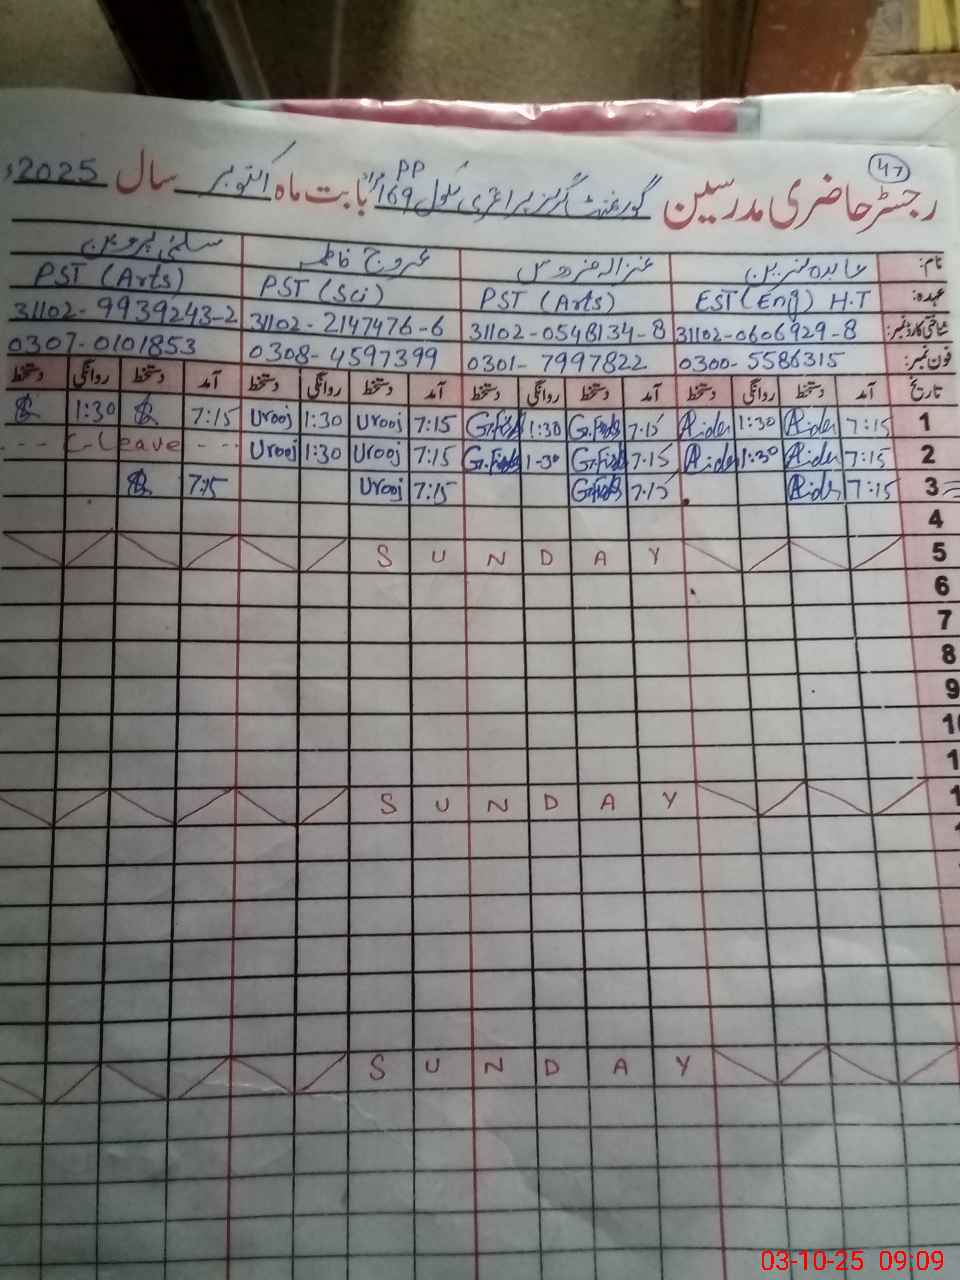 47
رجسٹر حاضری مدرسین گورنمنٹ گرلز پرائمری سکول 169 مراد PP بابت ماہ اکتوبر سال 2025ء
نام: عابدہ نسرین غزالہ فردوس عروج فاطمہ سلمیٰ پروین
عہدہ: EST (Eng) H.T PST (Arts) PST (Sci) PST (Arts)
شناختی کارڈ نمبر: 31102-0606929-8 31102-0548134-8 31102-2147476-6 31102-9939243-2
فون نمبر: 0300-5586315 0301-7997822 0308-4597399 0307-0101853
تاریخ آمد دستخط روانگی دستخط آمد دستخط روانگی دستخط آمد دستخط روانگی دستخط آمد دستخط روانگی دستخط
1 7:15 1:30 7:15 1:30 7:15 Urooj 1:30 Urooj 7:15 1:30
2 7:15 1:30 7:15 1:30 7:15 Urooj 1:30 Urooj C-Leave
3 7:15 7:15 7:15 Urooj 7:15
4
5 S U N D A Y
6
7
8
9
S U N D A Y
S U N D A Y
03-10-25 09:09